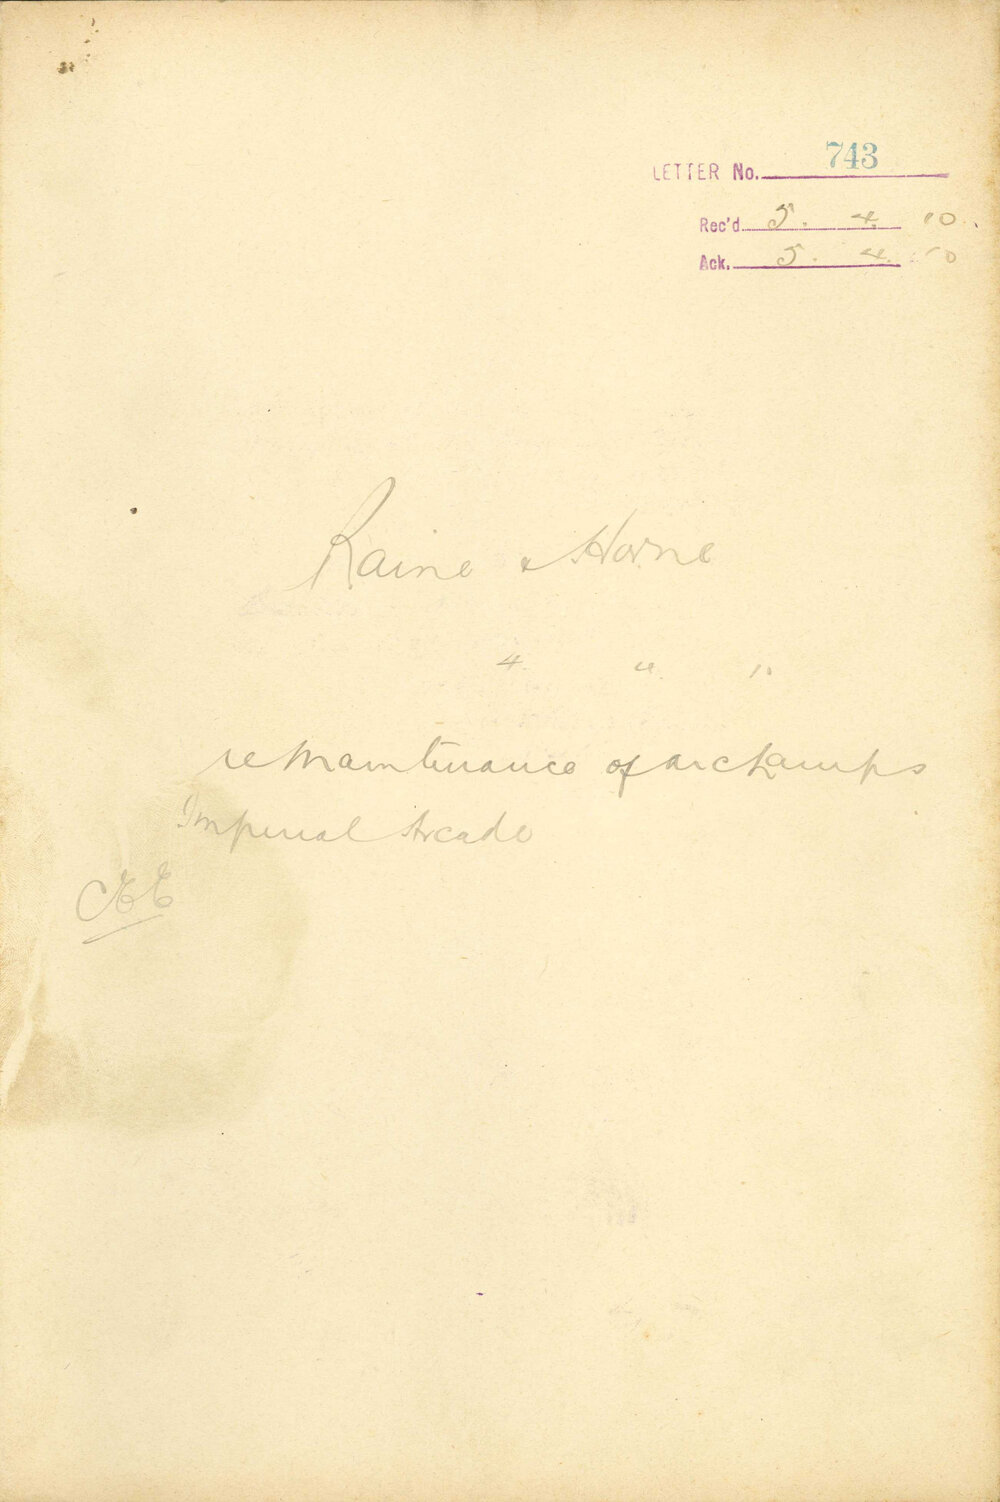 LETTER No. 743
Rec'd 5. 4. 10.
Ack. 5. 4. 10
Raine & Horne
4. 4. 10
re Maintenance of arc Lamps
Imperial Arcade
CEE